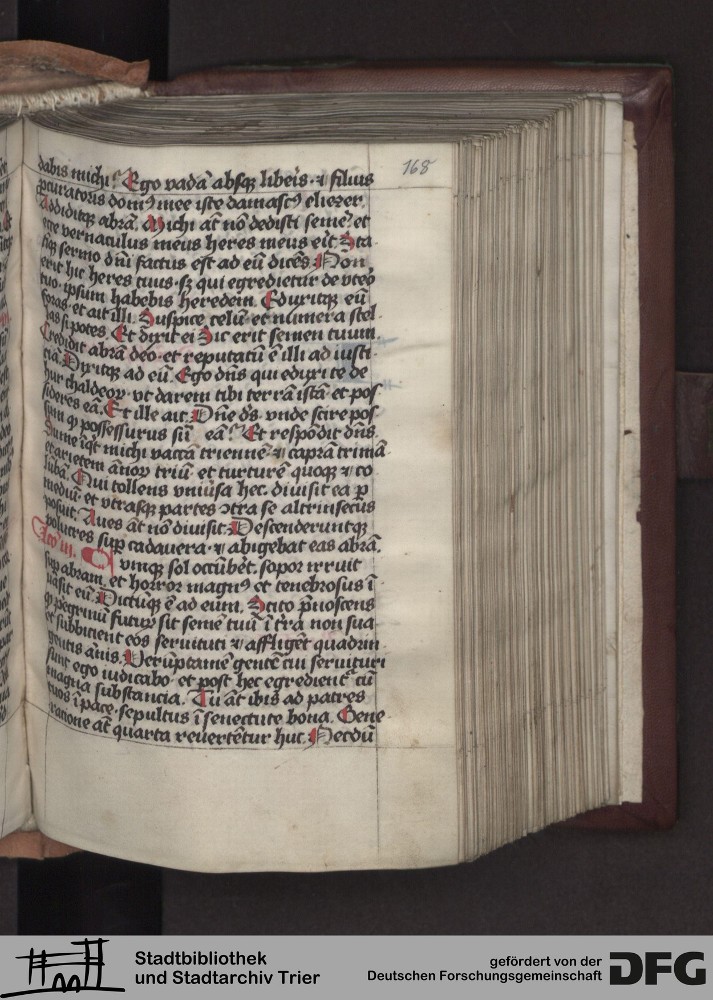 168
dabis michi? Ego vadā absqꝫ liberis ⁊ filius
ꝓcuratoris domꝰ mee iste damascꝰ eliezer.
Addiditqꝫ abrā. Michi at̄ nō dedisti semē et
ecce vernaculus meus heres meus erit Sta
tīqꝫ sermo dn̄i factus est ad eū dicēs. Non
erit hic heres tuus sꝫ qui egredietur de vteo
tuo ipsum habebis heredem. Eduxitqꝫ eū
foras et ait illi. Suspice celū et numera stel
las si potes Et dixit ei Sic erit semen tuum.
Credidit abrā deo et reputatū ē illi ad iusti
ciā. Dixitqꝫ ad eū. Ego dn̄s qui eduxi te de
hur chaldeoꝝ vt darem tibi terrā istā et pos
sideres eā. Et ille ait. Dn̄e ds̄ vnde scire pos
sum ꝙ possessurus sū eā? Et respōdit dn̄s.
Sume īqt michi vaccā triennē ⁊ caprā trimā
et arietem ānoꝝ triū et turturē quoqꝫ ⁊ co
lūbā. Qui tollens vniūsa hec diuisit ea ꝑ
mediū et vtrasqꝫ partes ↄtra se altrinsecus
posuit. Aues at̄ nō diuisit. Descenderuntqꝫ
volucres suꝑ cadauera ⁊ abigebat eas abrā.
Lcō iii. Cumqꝫ sol occūbēt. sopor irruit
suꝑ abram. et horror magnꝰ et tenebrosus ī
uasit eū. Dictūqꝫ ē ad eum. Scito p̄noscens
ꝙ ꝑegrinū futuꝝ sit semē tuū ī tr̄a non sua
et subbicient eos seruituti ⁊ affligēt quadrin
gentis ānis. Verūptamē gentē cui seruituri
sunt ego iudicabo et post hec egredient᷑ cū
magna substancia. Tu at̄ ibis ad patres
tuos ī pace sepultus ī senectute bona. Gene
ratione at̄ quarta reuertētur huc. Necdū
Stadtbibliothek
und Stadtarchiv Trier
gefördert von der
Deutschen Forschungsgemeinschaft
DFG